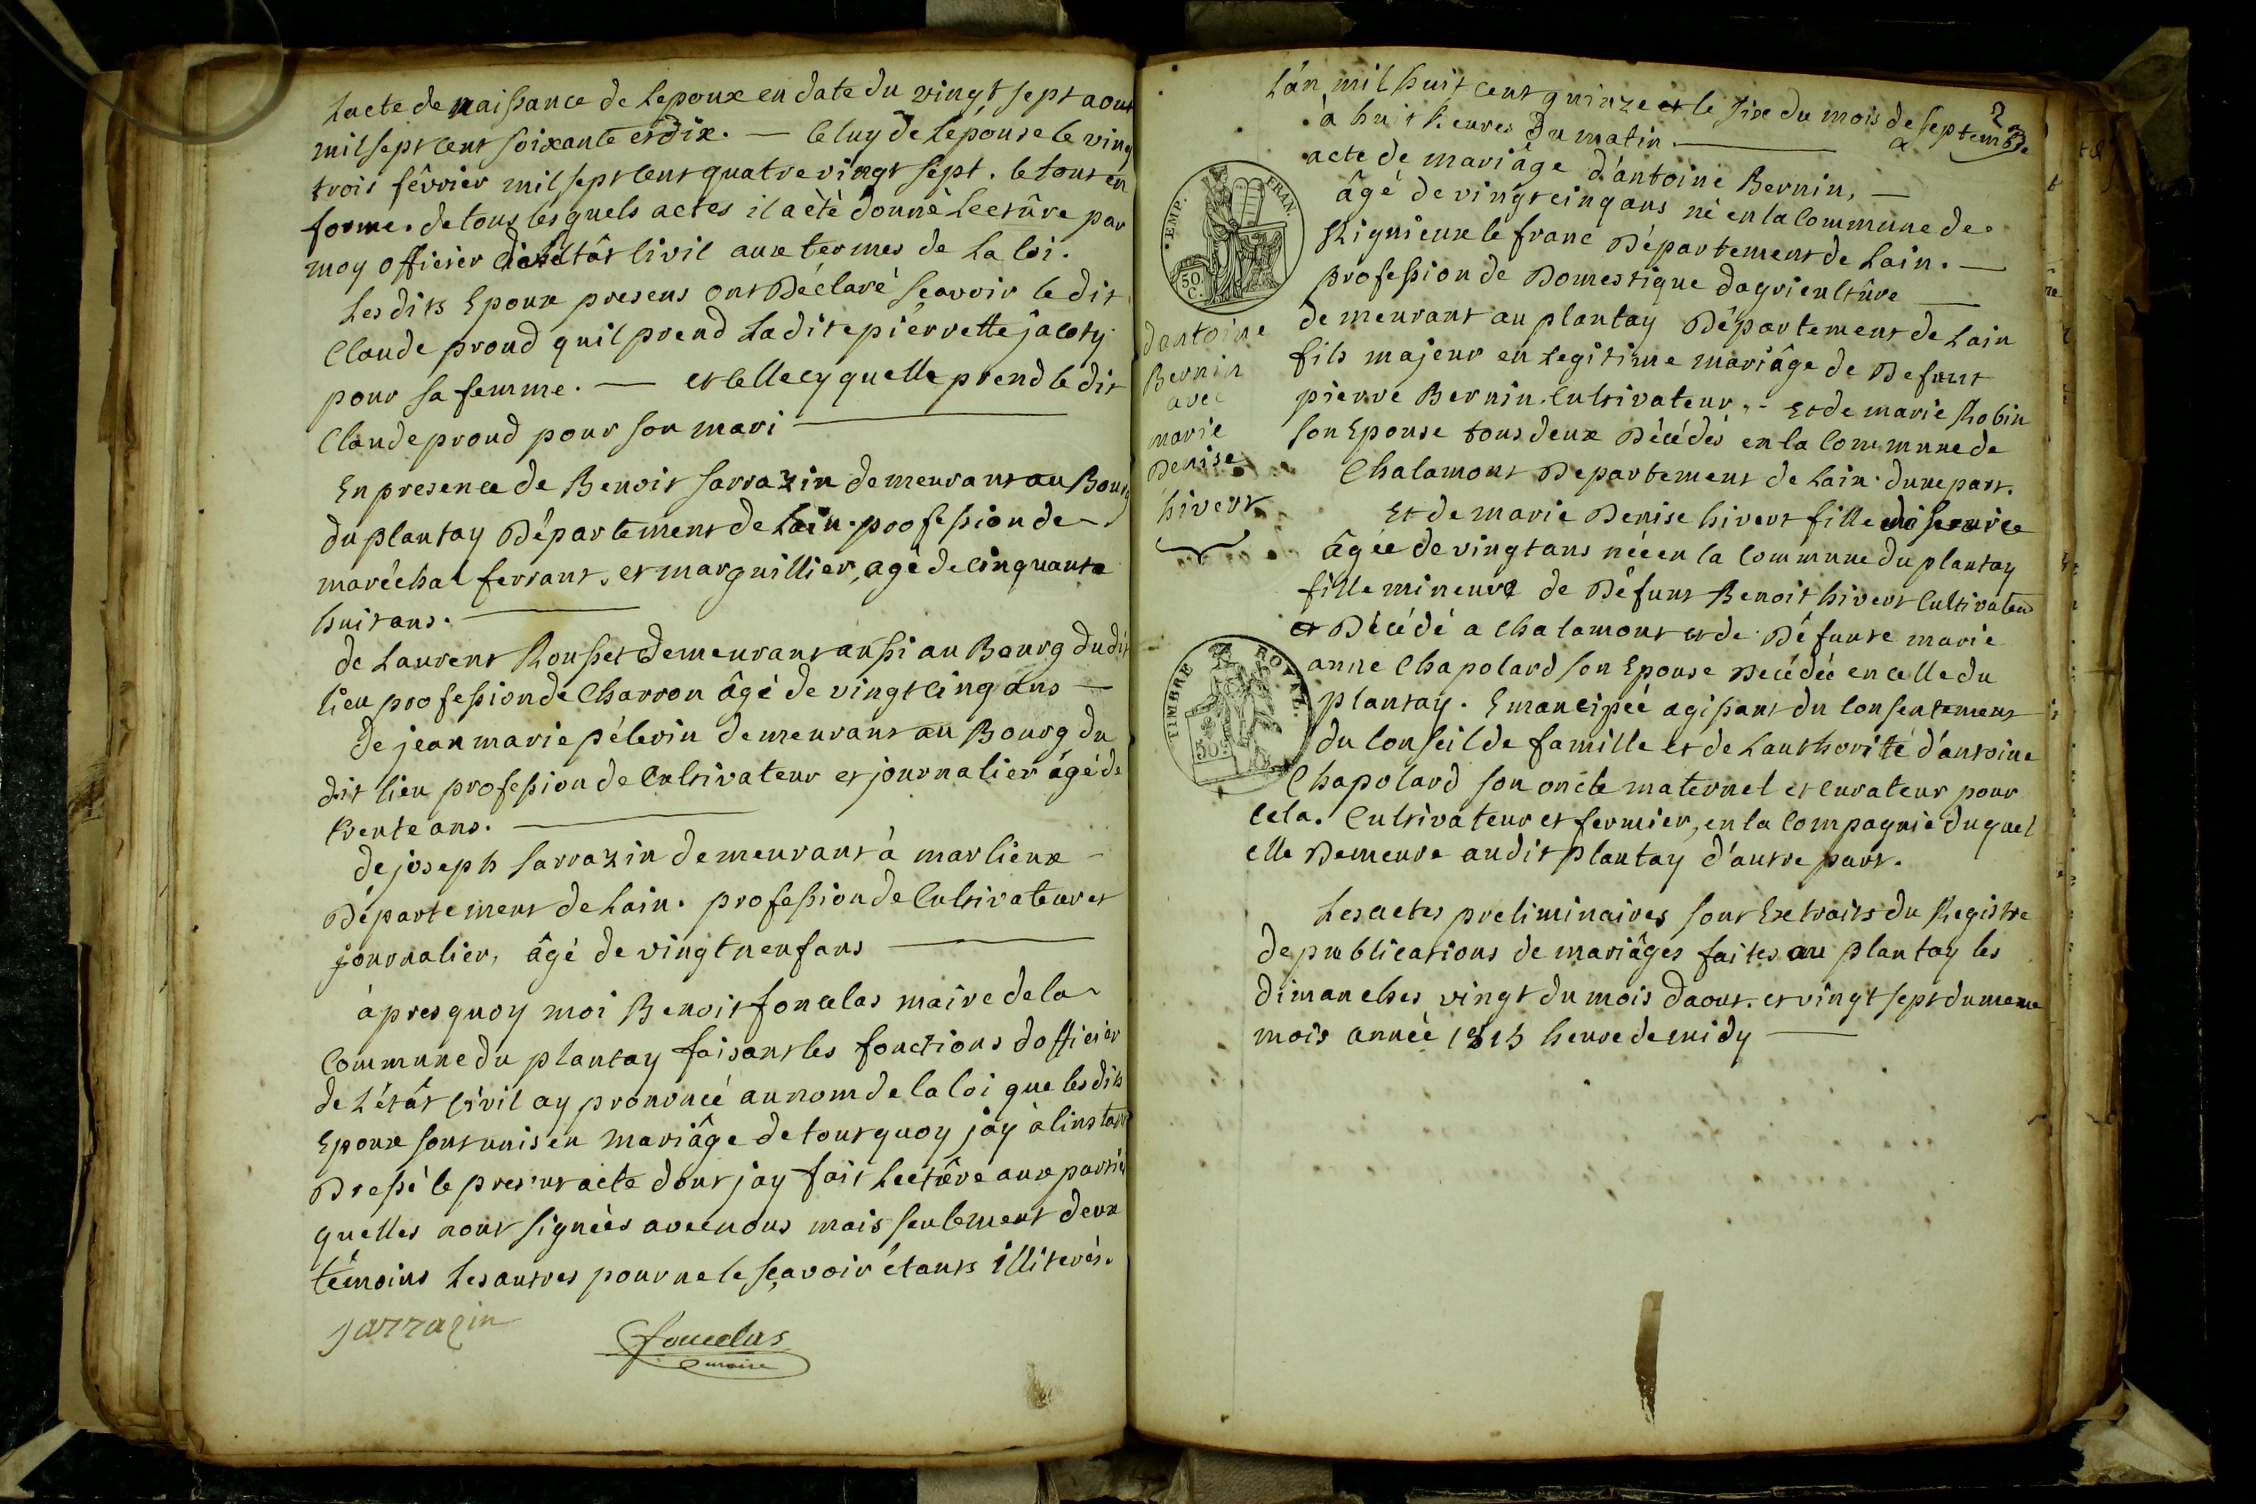 Lacte de naissance de Lepoux en date du vingt sept aout
mil sept cent soixante et dix. — Celuy de Lépouse le ving
trois fêvrier mil sept cent quatre vingt sept. le tout en
forme. de tous lesquels actes il a èté donnè Lectûre par
moy officier de létât Civil aux termes de La loi.
Lesdits Epoux presens ont Déclaré sçavoir le dit
Claude proud quil prend Ladite piérrette jacoty
pour sa femme. — et Celle cy quelle prend le dit
Claude proud pour son mari —
En presence de Benoit Sarrazin demeurant au Bourg
du plantay Département de Lain. profession de
maréchal ferrant, et marguillier, agé de Cinquante
huit ans. —
de Laurent Rousset demeurant aussi au Bourg dudit
lieu profession de Charron âgé de vingt cinq ans —
de jean marie pélerin demeurant au Bourg du
dit lieu profession de Cultivateur et journalier âgé de
trente ans. —
de joseph Sarrazin demeurant à marlieux —
Département de Lain. profession de Cultivateur et
journalier, âgé de vingt neuf ans —
àpres quoy moi Benoit foncelas maire de la
Commune du plantay faisant les fonctions dofficier
de L'étât Civil ay prononcé au nom de la loi que lesdits
Epoux sont unis en mariâge de tout quoy jay à linstant
Dressé le present acte dont jay fait Lectûre aux parties
quelles nont signées avec nous mais seulement deux
témoins Les autres pour ne le sçavoir étants illiterés.
Sarrazin
foncelas
maire
2
Lán mil huit cent quinze et le six du mois de septembre
à huit heures du matin. —
acte de mariâge d'antoine Bernin, —
âgé de vingt cinq ans né en la Commune de
Rignieux le franc Département de Lain. —
profession de Domestique dagricultûre —
demeurant au plantay Département de Lain
fils majeur en Legitime mariâge de Defunt
pierre Bernin Cultivateur, - Et de marie Robin
son Epouse tous deux Décédés en la Commune de
Chalamont Departement de Lain. dune part.
Et de marie Denise hivert fille
âgée de vingt ans née en la Commune du plantay
fille mineure de Défunt Benoit hivert Cultivateur
et Décédé a Chalamont et de Défunte marie
anne Chapolard son Epouse Decédée en celle du
plantay. Emancipée agissant du Consentement
du Conseil de famille et de Lauthorité d'antoine
Chapolard son oncle maternel et Curateur pour
Cela. Cultivateur et fermier, en la Compagnie duquel
elle Demeure audit plantay d'autre part.
Les actes preliminaires sont Extraits du Registre
de publications de mariâges faites au plantay les
dimanches vingt du mois daout. et vingt sept du meme
mois année 1815 heure de midy —
EMP. FRAN.
50
C.
dantoine
Bernin
avec
marie
Denise
hivert
TIMBRE ROYAL.
50